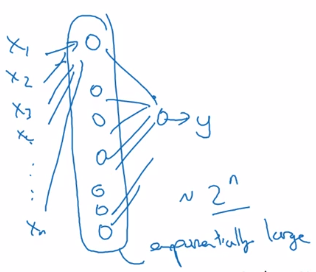 x₁
x₂
x₃
x₄
⋮
xₙ
y
~ 2ⁿ
exponentially large